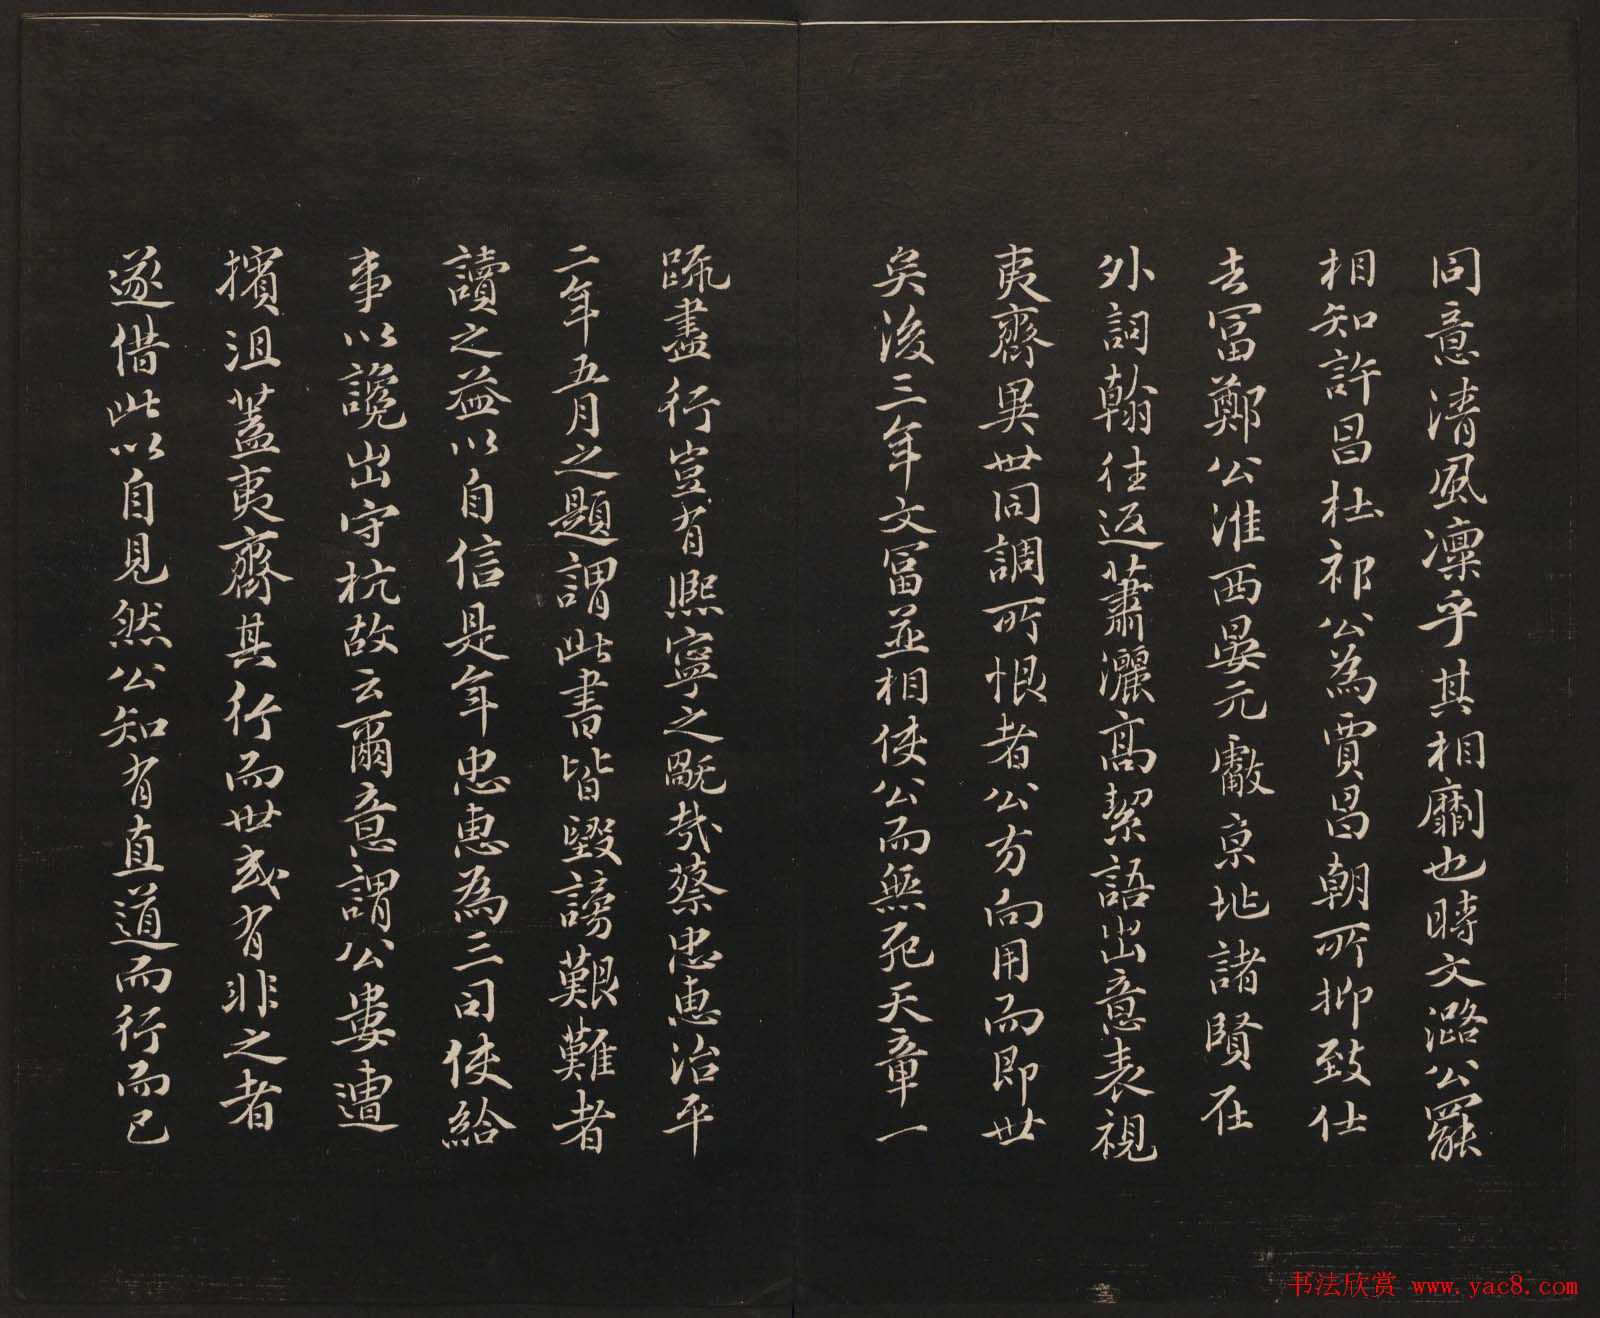 同意清風凜乎其相劘也時文潞公罷
相知許昌杜祁公為賈昌朝所抑致仕
去富鄭公淮西晏元獻京兆諸賢在
外詞翰往返蕭灑高絜語出意表視
夷齊異世同調所恨者公方向用而即世
矣後三年文富並相使公而無死天章一
疏盡行豈有熙寧之戤哉蔡忠惠治平
二年五月之題謂此書皆毀謗艱難者
讀之益以自信是年忠惠為三司使給
事以讒出守杭故云爾意謂公婁遭
擯沮蓋夷齊其行而世或有非之者
遂借此以自見然公知有直道而行而已
书法欣赏 www.yac8.com